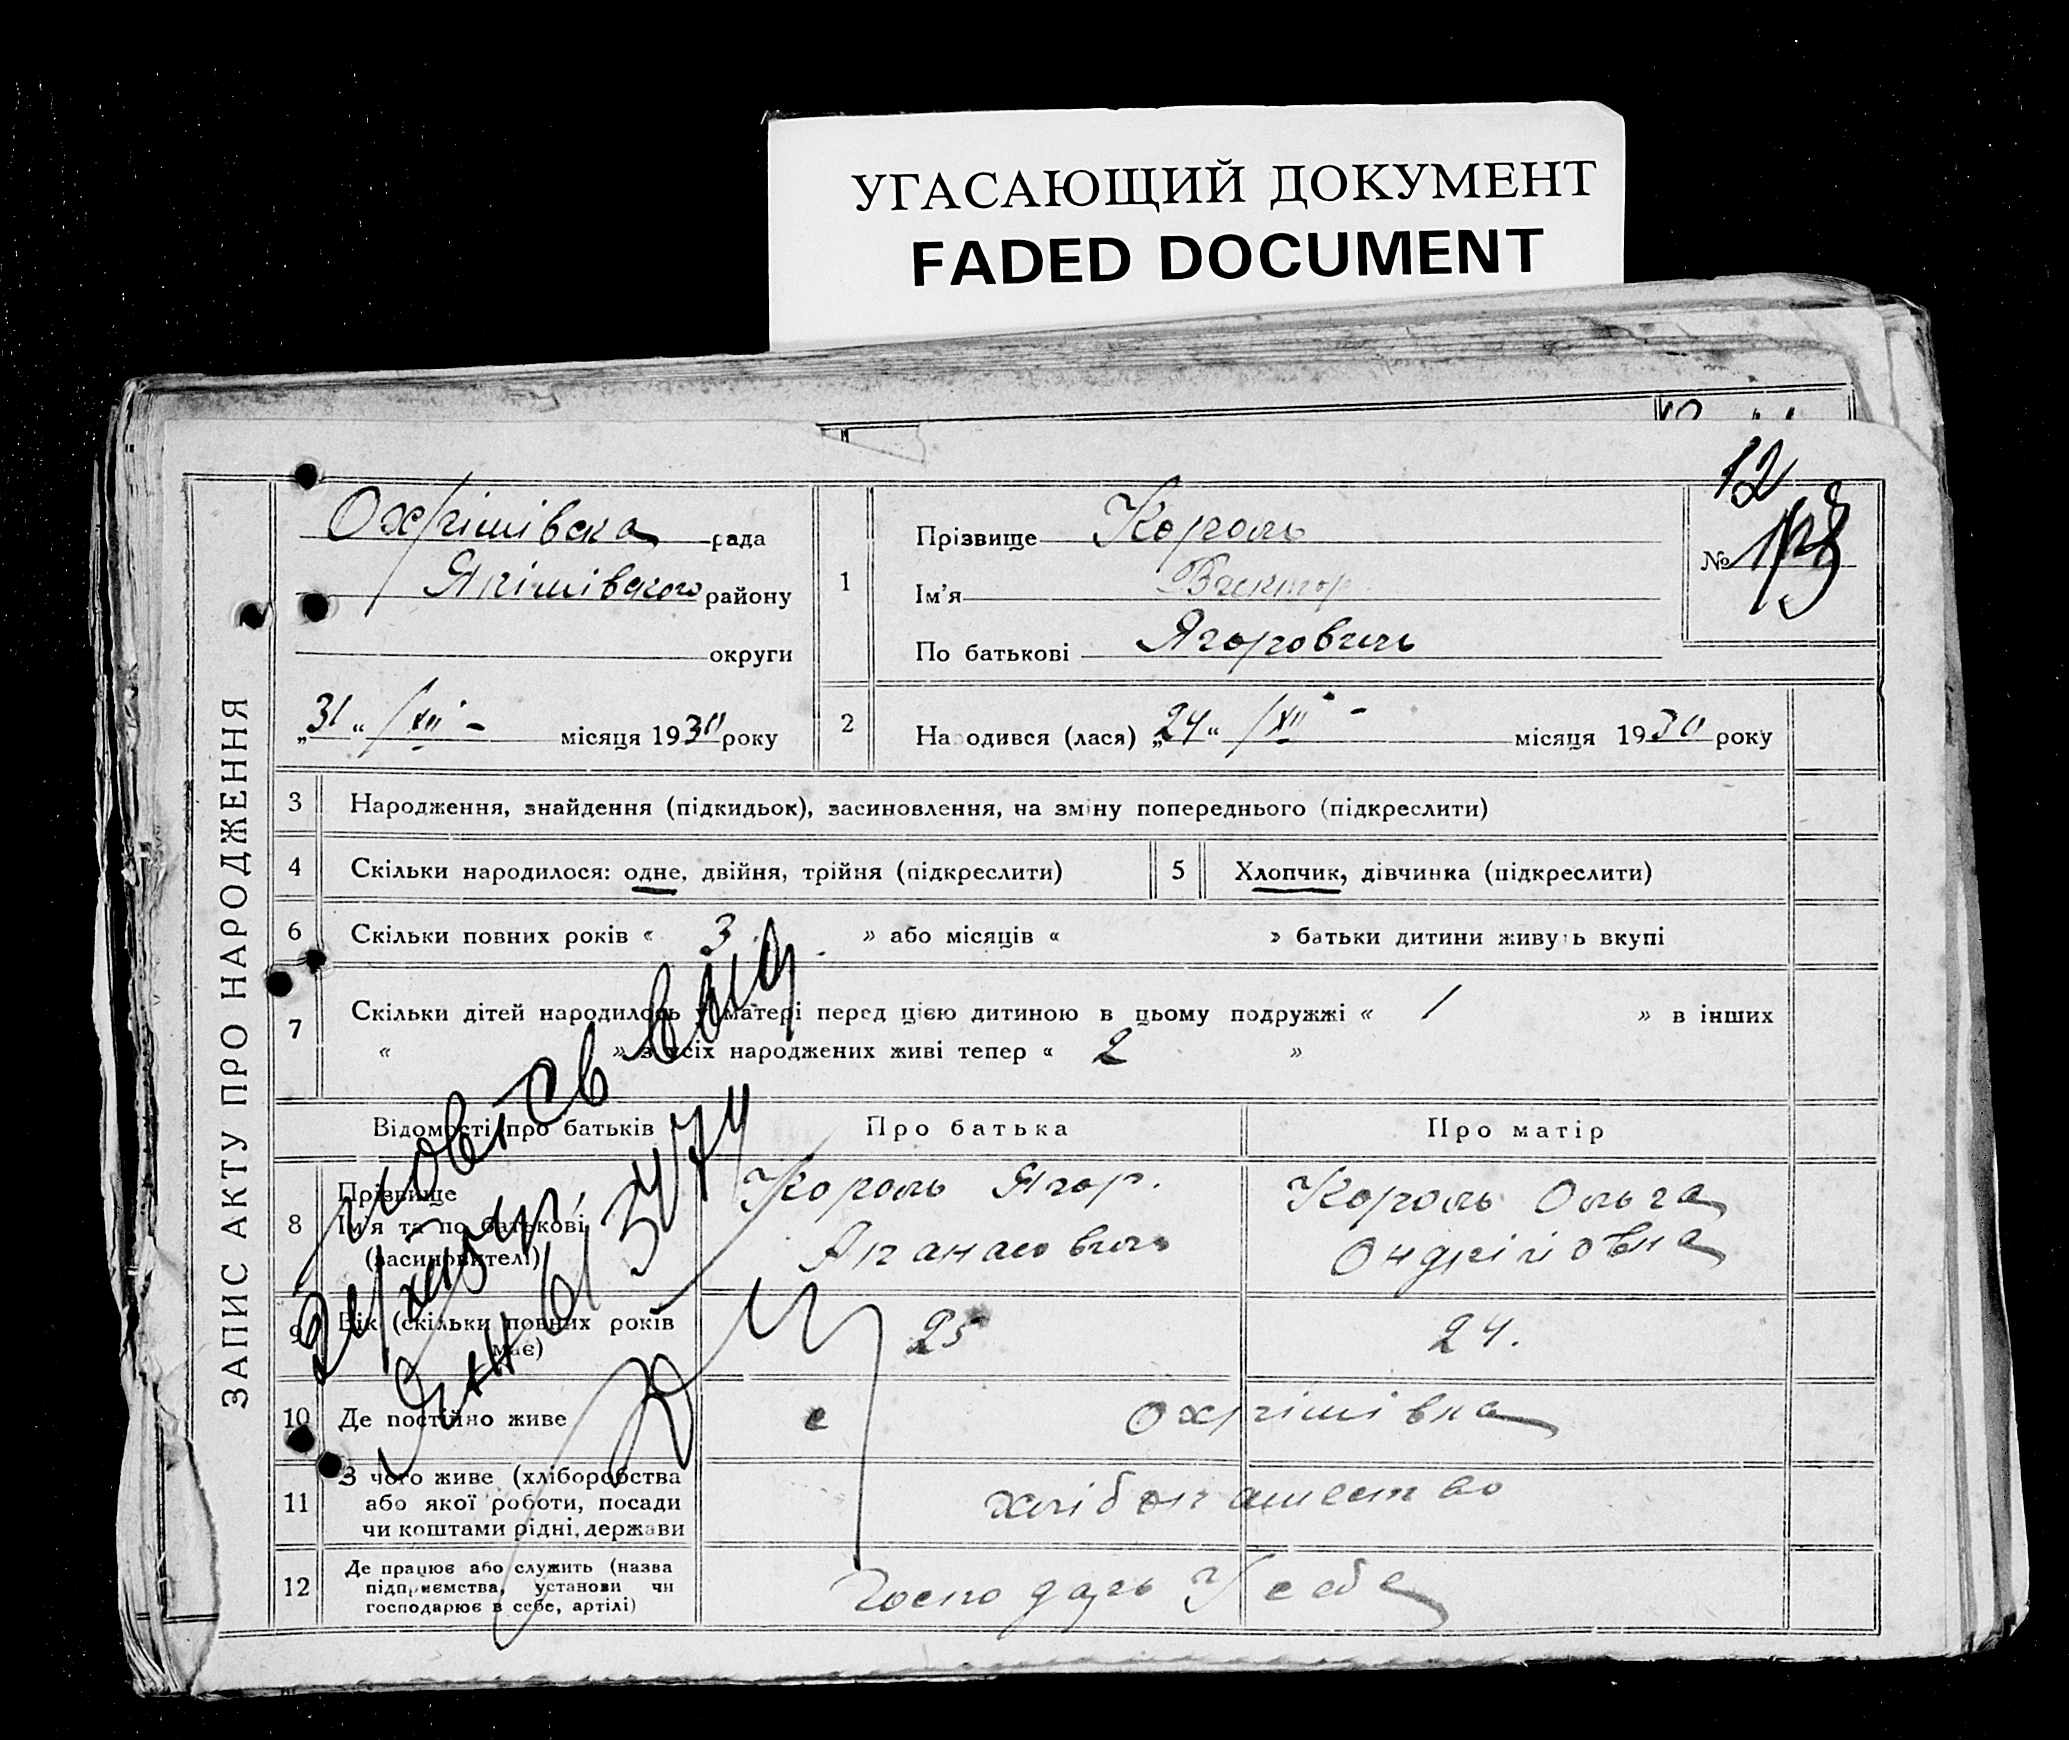 УГАСАЮЩИЙ ДОКУМЕНТ
FADED DOCUMENT
ЗАПИС АКТУ ПРО НАРОДЖЕННЯ
Охрімівска рада
Якімівского району
округи
„31“ /XII - місяця 1930 року
12
№
1 Прізвище Король
Ім'я Віктор
По батькові Ягорович
2 Народився (лася) „24“ /XII - місяця 1930 року
3 Народження, знайдення (підкидьок), засиновлення, на зміну попереднього (підкреслити)
4 Скільки народилося: одне, двійня, трійня (підкреслити)
5 Хлопчик, дівчинка (підкреслити)
6 Скільки повних років « 3 » або місяців « » батьки дитини живуть вкупі
7 Скільки дітей народилось у матері перед цією дитиною в цьому подружжі « 1 » в інших
« » з усіх народжених живі тепер « 2 »
Відомості про батьків Про батька Про матір
8 Прізвище
Ім'я та по батькові
(засиновителі)
Король Ягор.
Апанасович
Король Ольга
Ондріівна
9 Вік (скільки повних років
має)
25
24.
10 Де постійно живе
с Охрімівка
11 З чого живе (хліборобства
або якої роботи, посади
чи коштами рідні, держави
хлібопашество
12 Де працює або служить (назва
підприємства, установи чи
господарює в себе, артілі)
Господарь У себе